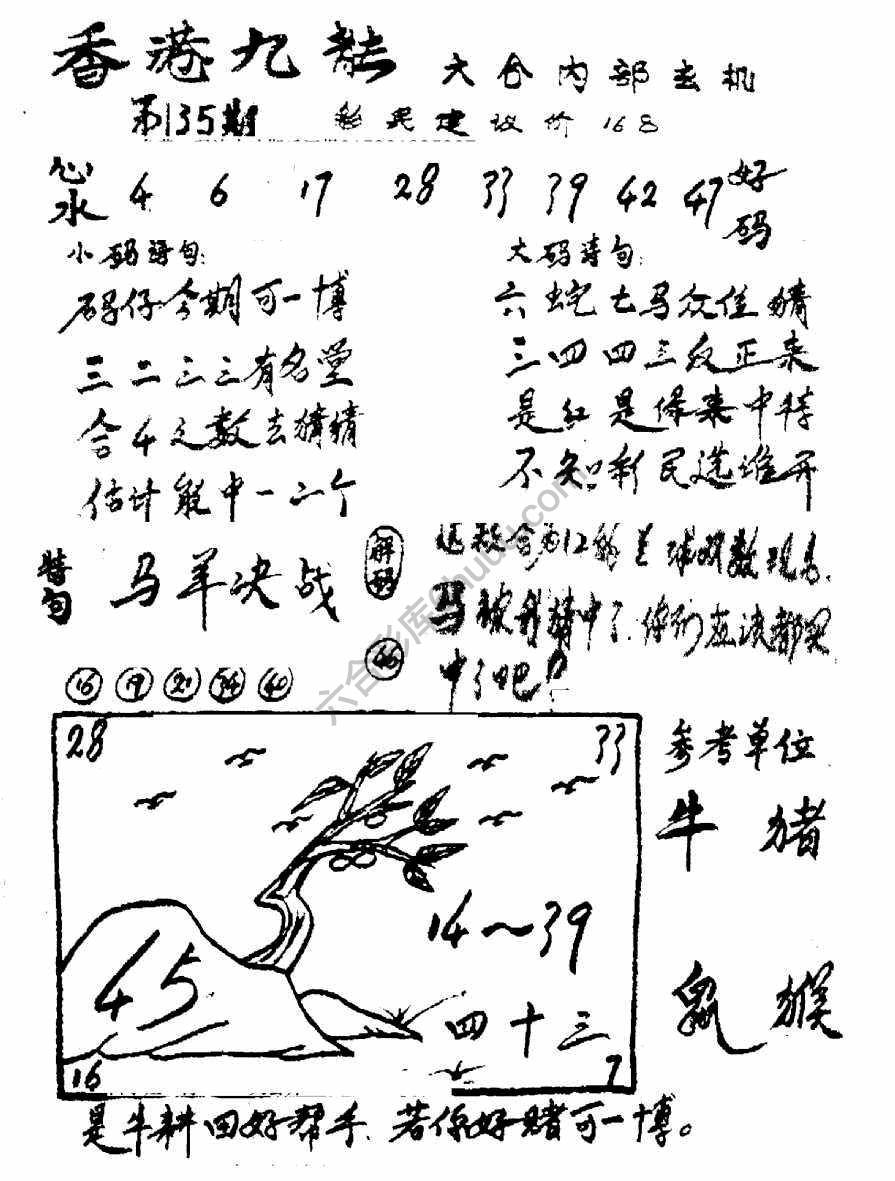 香港九龍 六合内部玄机
第135期 彩民建议价168
心水 4 6 17 28 33 39 42 47 好码
小码语句:
码仔今期可一博
三二三三有名堂
合4之数去猜猜
估计能中一二个
大码诗句:
六蛇七马众佳猜
三四四三反正来
是红是绿来中特
不知彩民选谁开
特句 马羊决战
解码 46
马被我猜中了,你们应该都买
中了吧!
16 19 21 34 40
28 33
45
14～39
四十三
16 7
参考单位
牛 猪
鼠 猴
是牛耕田好帮手,若你好赌可一博。
六合彩库